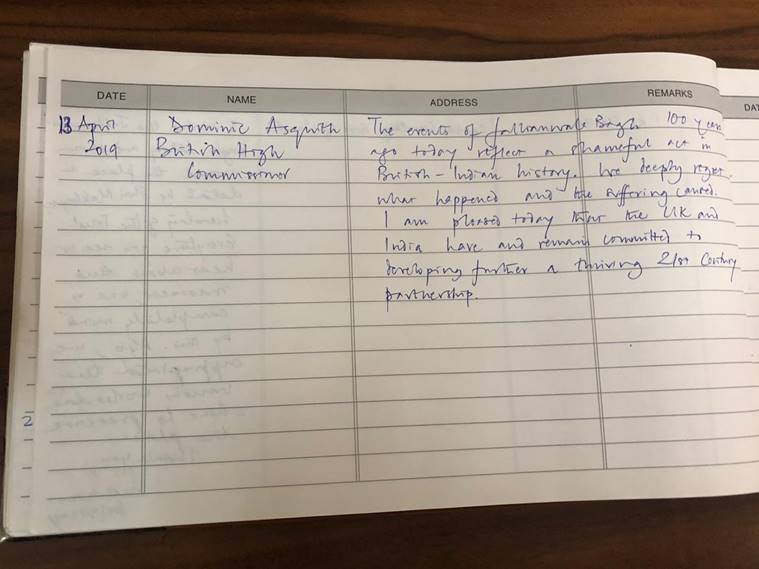 DATE NAME ADDRESS REMARKS DAT
13 April Dominic Asquith The events of Jallianwala Bagh 100 years
2019 British High ago today reflect a shameful act in
Commissioner British-Indian history. We deeply regret
what happened and the suffering caused.
I am pleased today that the UK and
India have and remain committed to
developing further a thriving 21st Century
partnership.
2